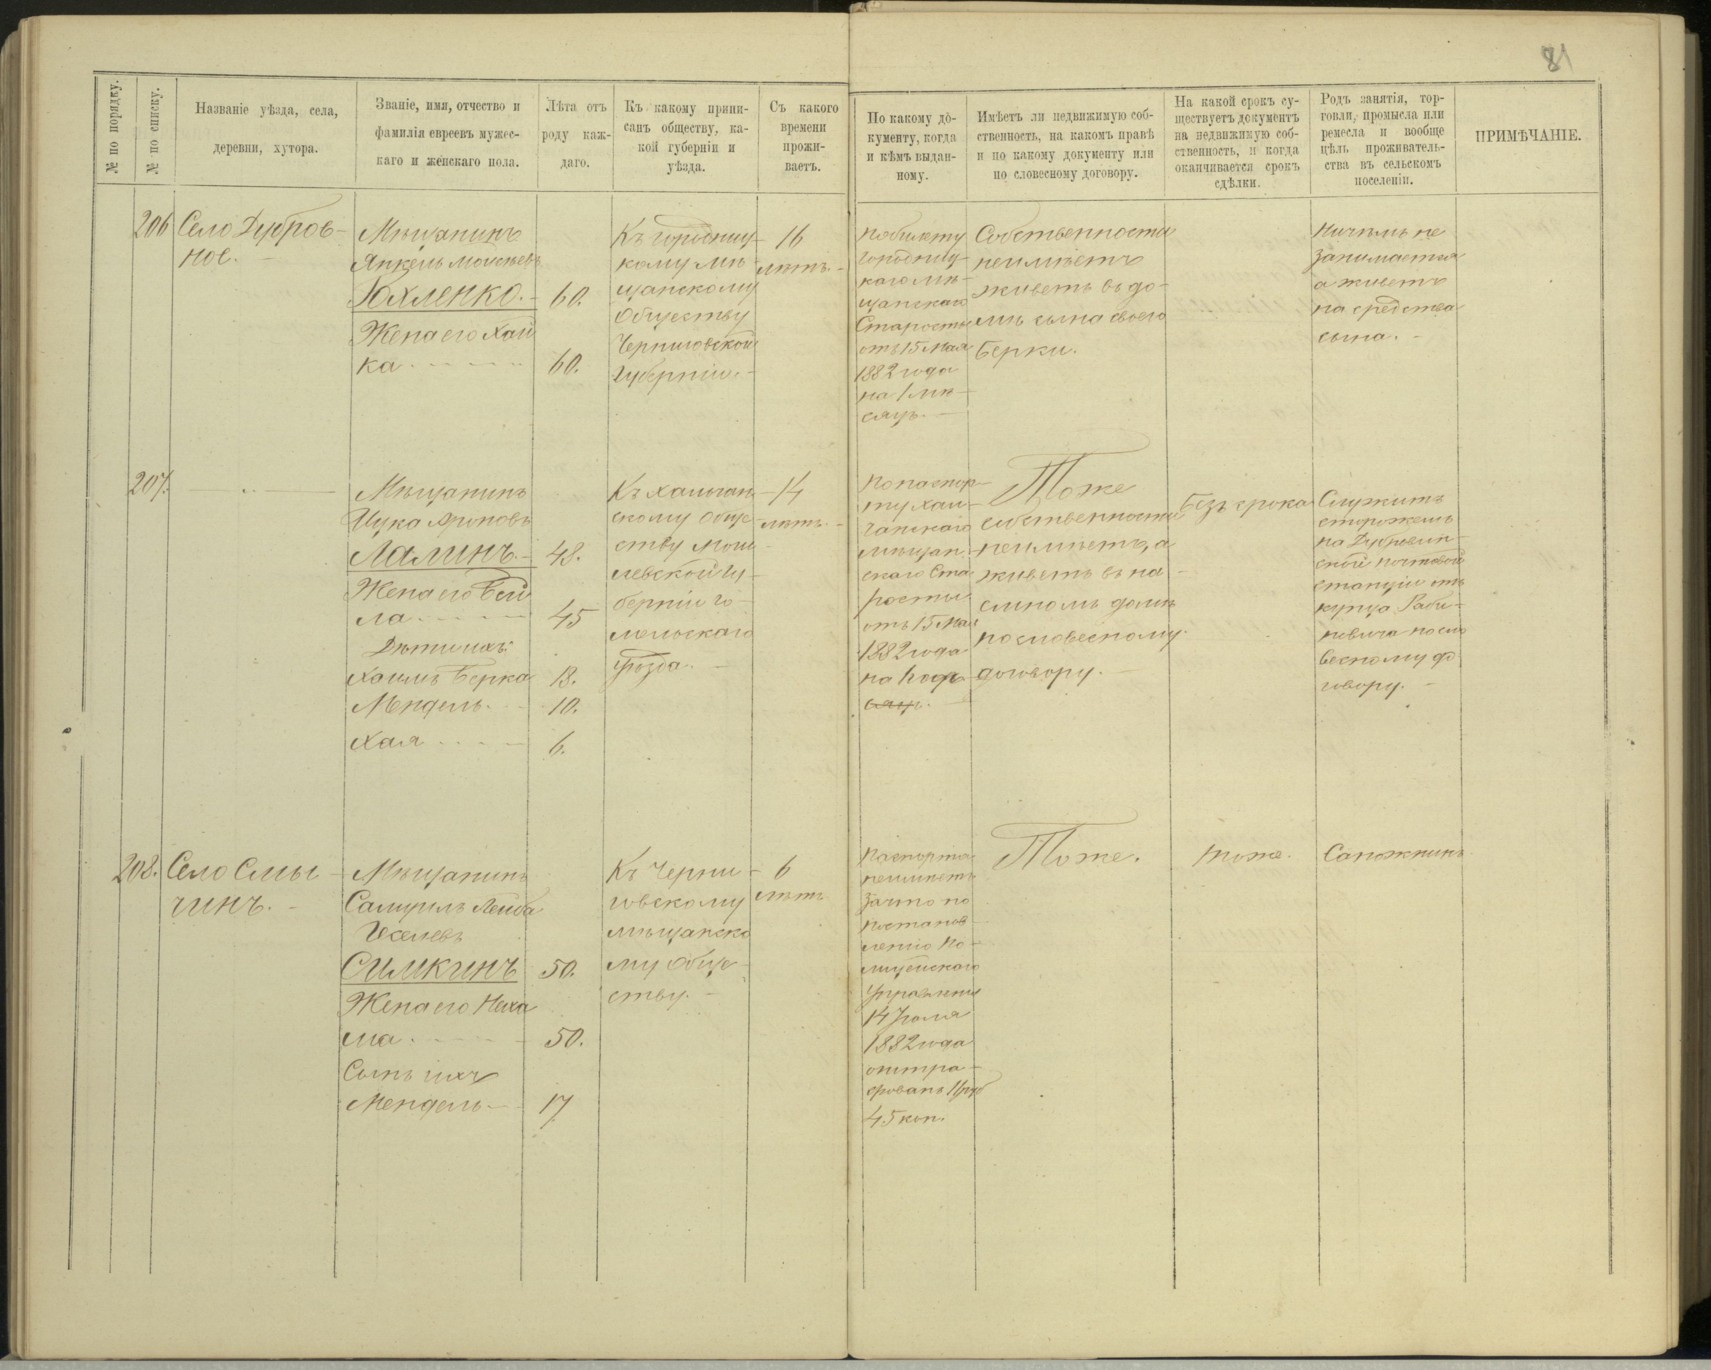 81
№ по порядку.
№ по списку.
Названіе уѣзда, села,
деревни, хутора.
Званіе, имя, отчество и
фамилія евреевъ мужес-
каго и женскаго пола.
Лѣта отъ
роду каж-
даго.
Къ какому припи-
санъ обществу, ка-
кой губерніи и
уѣзда.
Съ какого
времени
прожи-
ваетъ.
По какому до-
кументу, когда
и кѣмъ выдан-
ному.
Имѣетъ ли недвижимую соб-
ственность, на какомъ правѣ
и по какому документу или
по словесному договору.
На какой срокъ су-
ществуетъ документъ
на недвижимую соб-
ственность, и когда
оканчивается срокъ
сдѣлки.
Родъ занятія, тор-
говли, промысла или
ремесла и вообще
цѣль проживатель-
ства въ сельскомъ
поселеніи.
ПРИМѢЧАНІЕ.
206
Село Дубров-
ное.
Мѣщанинъ
Янкель Мовсѣевъ
Юхленко. 60.
Жена его Хай
ка 60.
Къ городниц-
кому мѣ-
щанскому
Обществу
Черниговской
губерніи.
16
лѣтъ.
По билету
городниц-
каго мѣ-
щанскаго
Старосты
отъ 15 Мая
1882 года
на 1 мѣ-
сяцъ.
Собственности
неимѣетъ
живетъ въ до-
мѣ сына своего
Берки.
Ничемъ не
занимается
а живетъ
на средства
сына.
207.
Мѣщанинъ
Ицка Ароновъ
Лалинъ 48.
Жена его Бей
ла 45
Дѣти ихъ:
Хаимъ Берка 13.
Мендель. 10.
Хая 6.
Къ Халчан-
скому обще-
ству Моги
левской гу-
берніи го-
мельскаго
уѣзда.
14
лѣтъ.
По паспор-
ту хал-
чанскаго
мѣщан-
скаго Ста
росты
отъ 15 Мая
1882 года
на 1 годъ
сяцъ.
Тоже
собственности
неимѣетъ, а
живетъ въ на
емномъ домѣ
по словесному
договору.
Безъ срока
Служитъ
сторожемъ
на Дубровин-
ской почтовой
станціи отъ
купца Раби-
новича по сло
весному до
говору.
208.
Село Смы-
чинъ.
Мѣщанинъ
Самуилъ Лейба
Іоселевъ
Симкинъ 50.
Жена его Неха
ма 50.
Сынъ ихъ
Мендель 17
Къ Черни-
говскому
мѣщанско
му обще-
ству.
6
лѣтъ
Паспорта
неимѣетъ
за что по
постанов
ленію По-
лицейскаго
Управленія
14 Іюля
1882 года
оштра-
фованъ 11 руб
45 коп.
Тоже.
тоже.
Сапожникъ